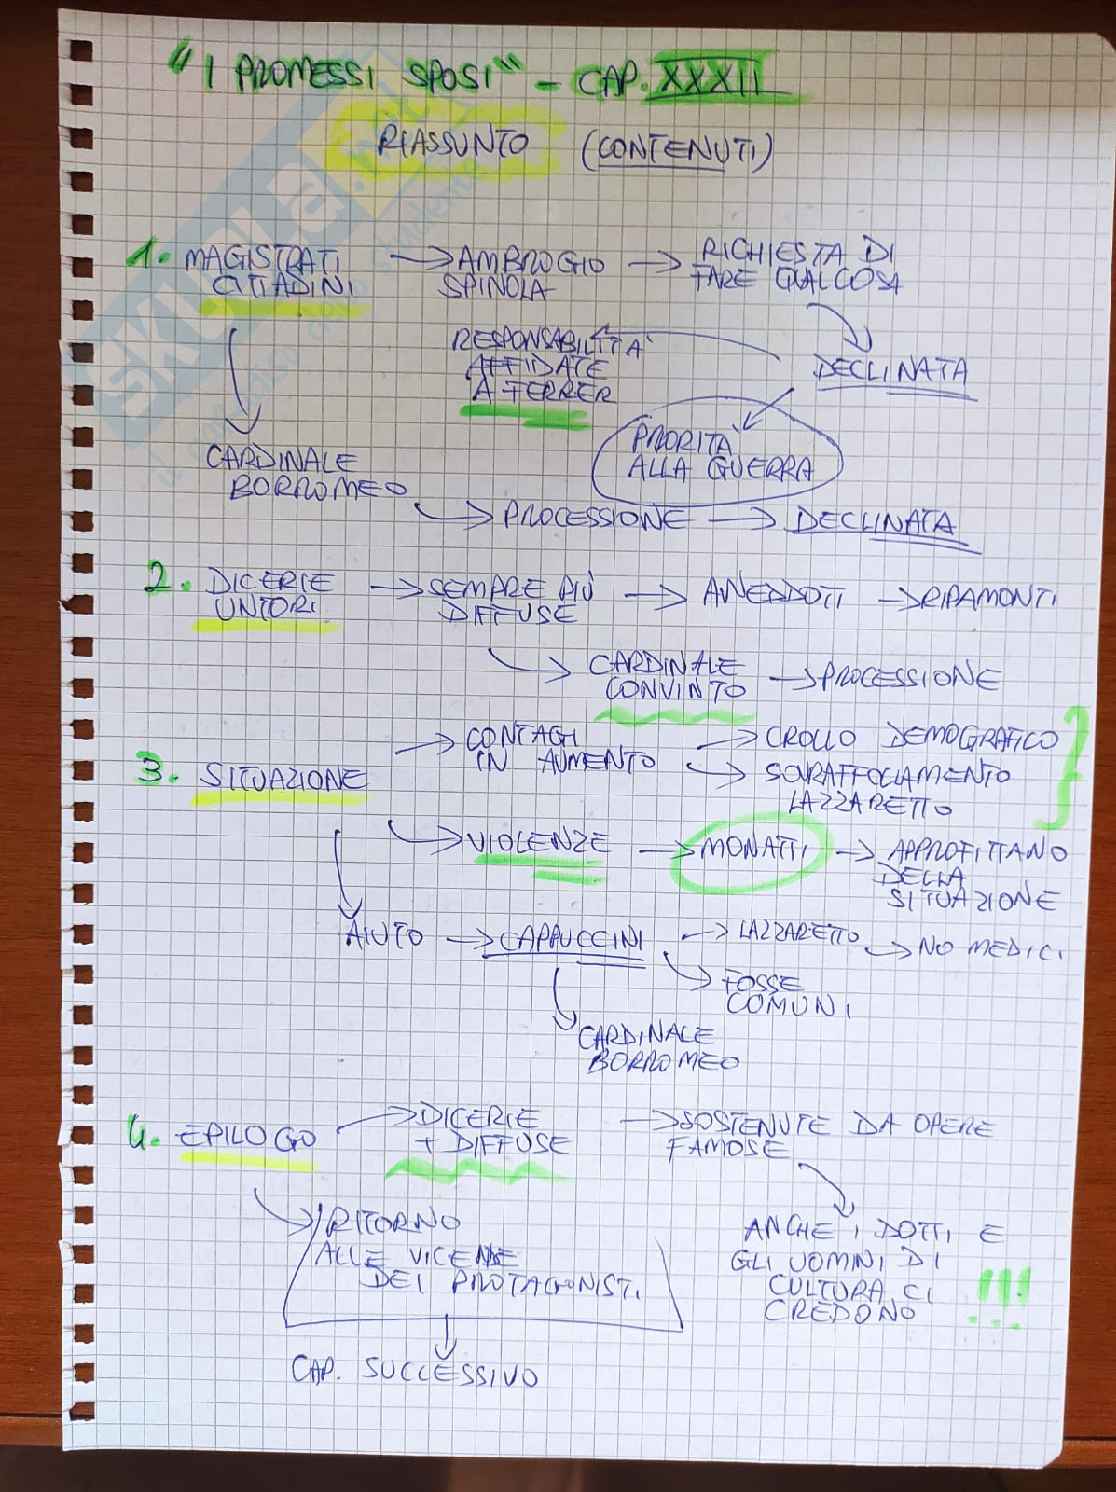 "I PROMESSI SPOSI" - CAP. XXXII
RIASSUNTO (CONTENUTI)
1. MAGISTRATI CITTADINI → AMBROGIO SPINOLA → RICHIESTA DI FARE QUALCOSA
RESPONSABILITÀ
AFFIDATE
A FERRER
DECLINATA
PRIORITÀ
ALLA GUERRA
CARDINALE
BORROMEO
→ PROCESSIONE → DECLINATA
2. DICERIE UNTORI → SEMPRE PIÙ DIFFUSE → ANEDDOTI → RIPAMONTI
→ CARDINALE CONVINTO → PROCESSIONE
3. SITUAZIONE → CONTAGI IN AUMENTO → CROLLO DEMOGRAFICO
→ SOVRAFFOLLAMENTO
LAZZARETTO
→ VIOLENZE → MONATTI → APPROFITTANO
DELLA
SITUAZIONE
AIUTO → CAPPUCCINI → LAZZARETTO → NO MEDICI
→ FOSSE
COMUNI
CARDINALE
BORROMEO
4. EPILOGO → DICERIE + DIFFUSE → SOSTENUTE DA OPERE
FAMOSE
ANCHE I DOTTI E
GLI UOMINI DI
CULTURA CI
CREDONO !!!
RITORNO
ALLE VICENDE
DEI PROTAGONISTI
CAP. SUCCESSIVO